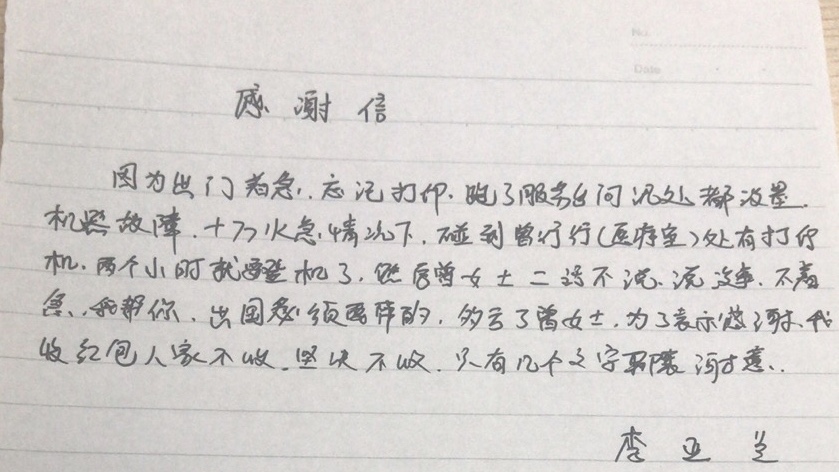 No.
Date
感谢信
因为出门着急,忘记打印.跑了服务台问讯处都没墨.
机器故障,十万火急情况下,碰到曾行行(医疗室)处有打印
机.两个小时就要登机了,然后曾女士二话不说,说没事,不着
急,我帮你,出国必须要阵的,多亏了曾女士,为了表示感谢,我
收红包人家不收.坚决不收.只有几个文字聊表谢意..
李亚兰